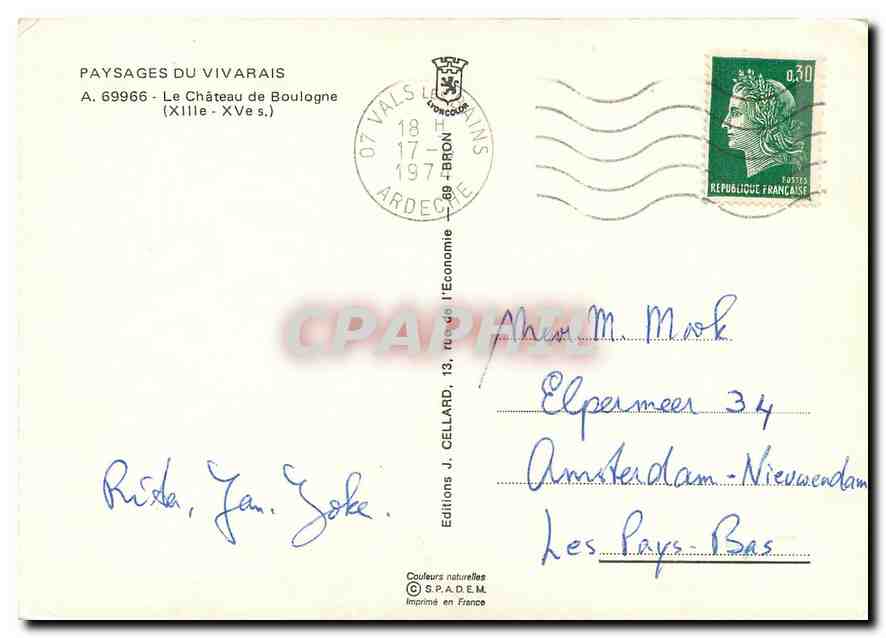 PAYSAGES DU VIVARAIS
A. 69966 - Le Château de Boulogne
(XIIIe - XVe s.)
LYONCOLOR
07 VALS LES BAINS
18 H
17-
197
ARDECHE
0,30
POSTES
REPUBLIQUE FRANÇAISE
Editions J. CELLARD, 13, rue de l'Economie - 69 - BRON
CPAPHIL
M. Mook
Elpermeer 34
Amsterdam - Nieuwendam
Les Pays-Bas
Rita, Jan. Joke.
Couleurs naturelles
© S.P.A.D.E.M.
Imprimé en France